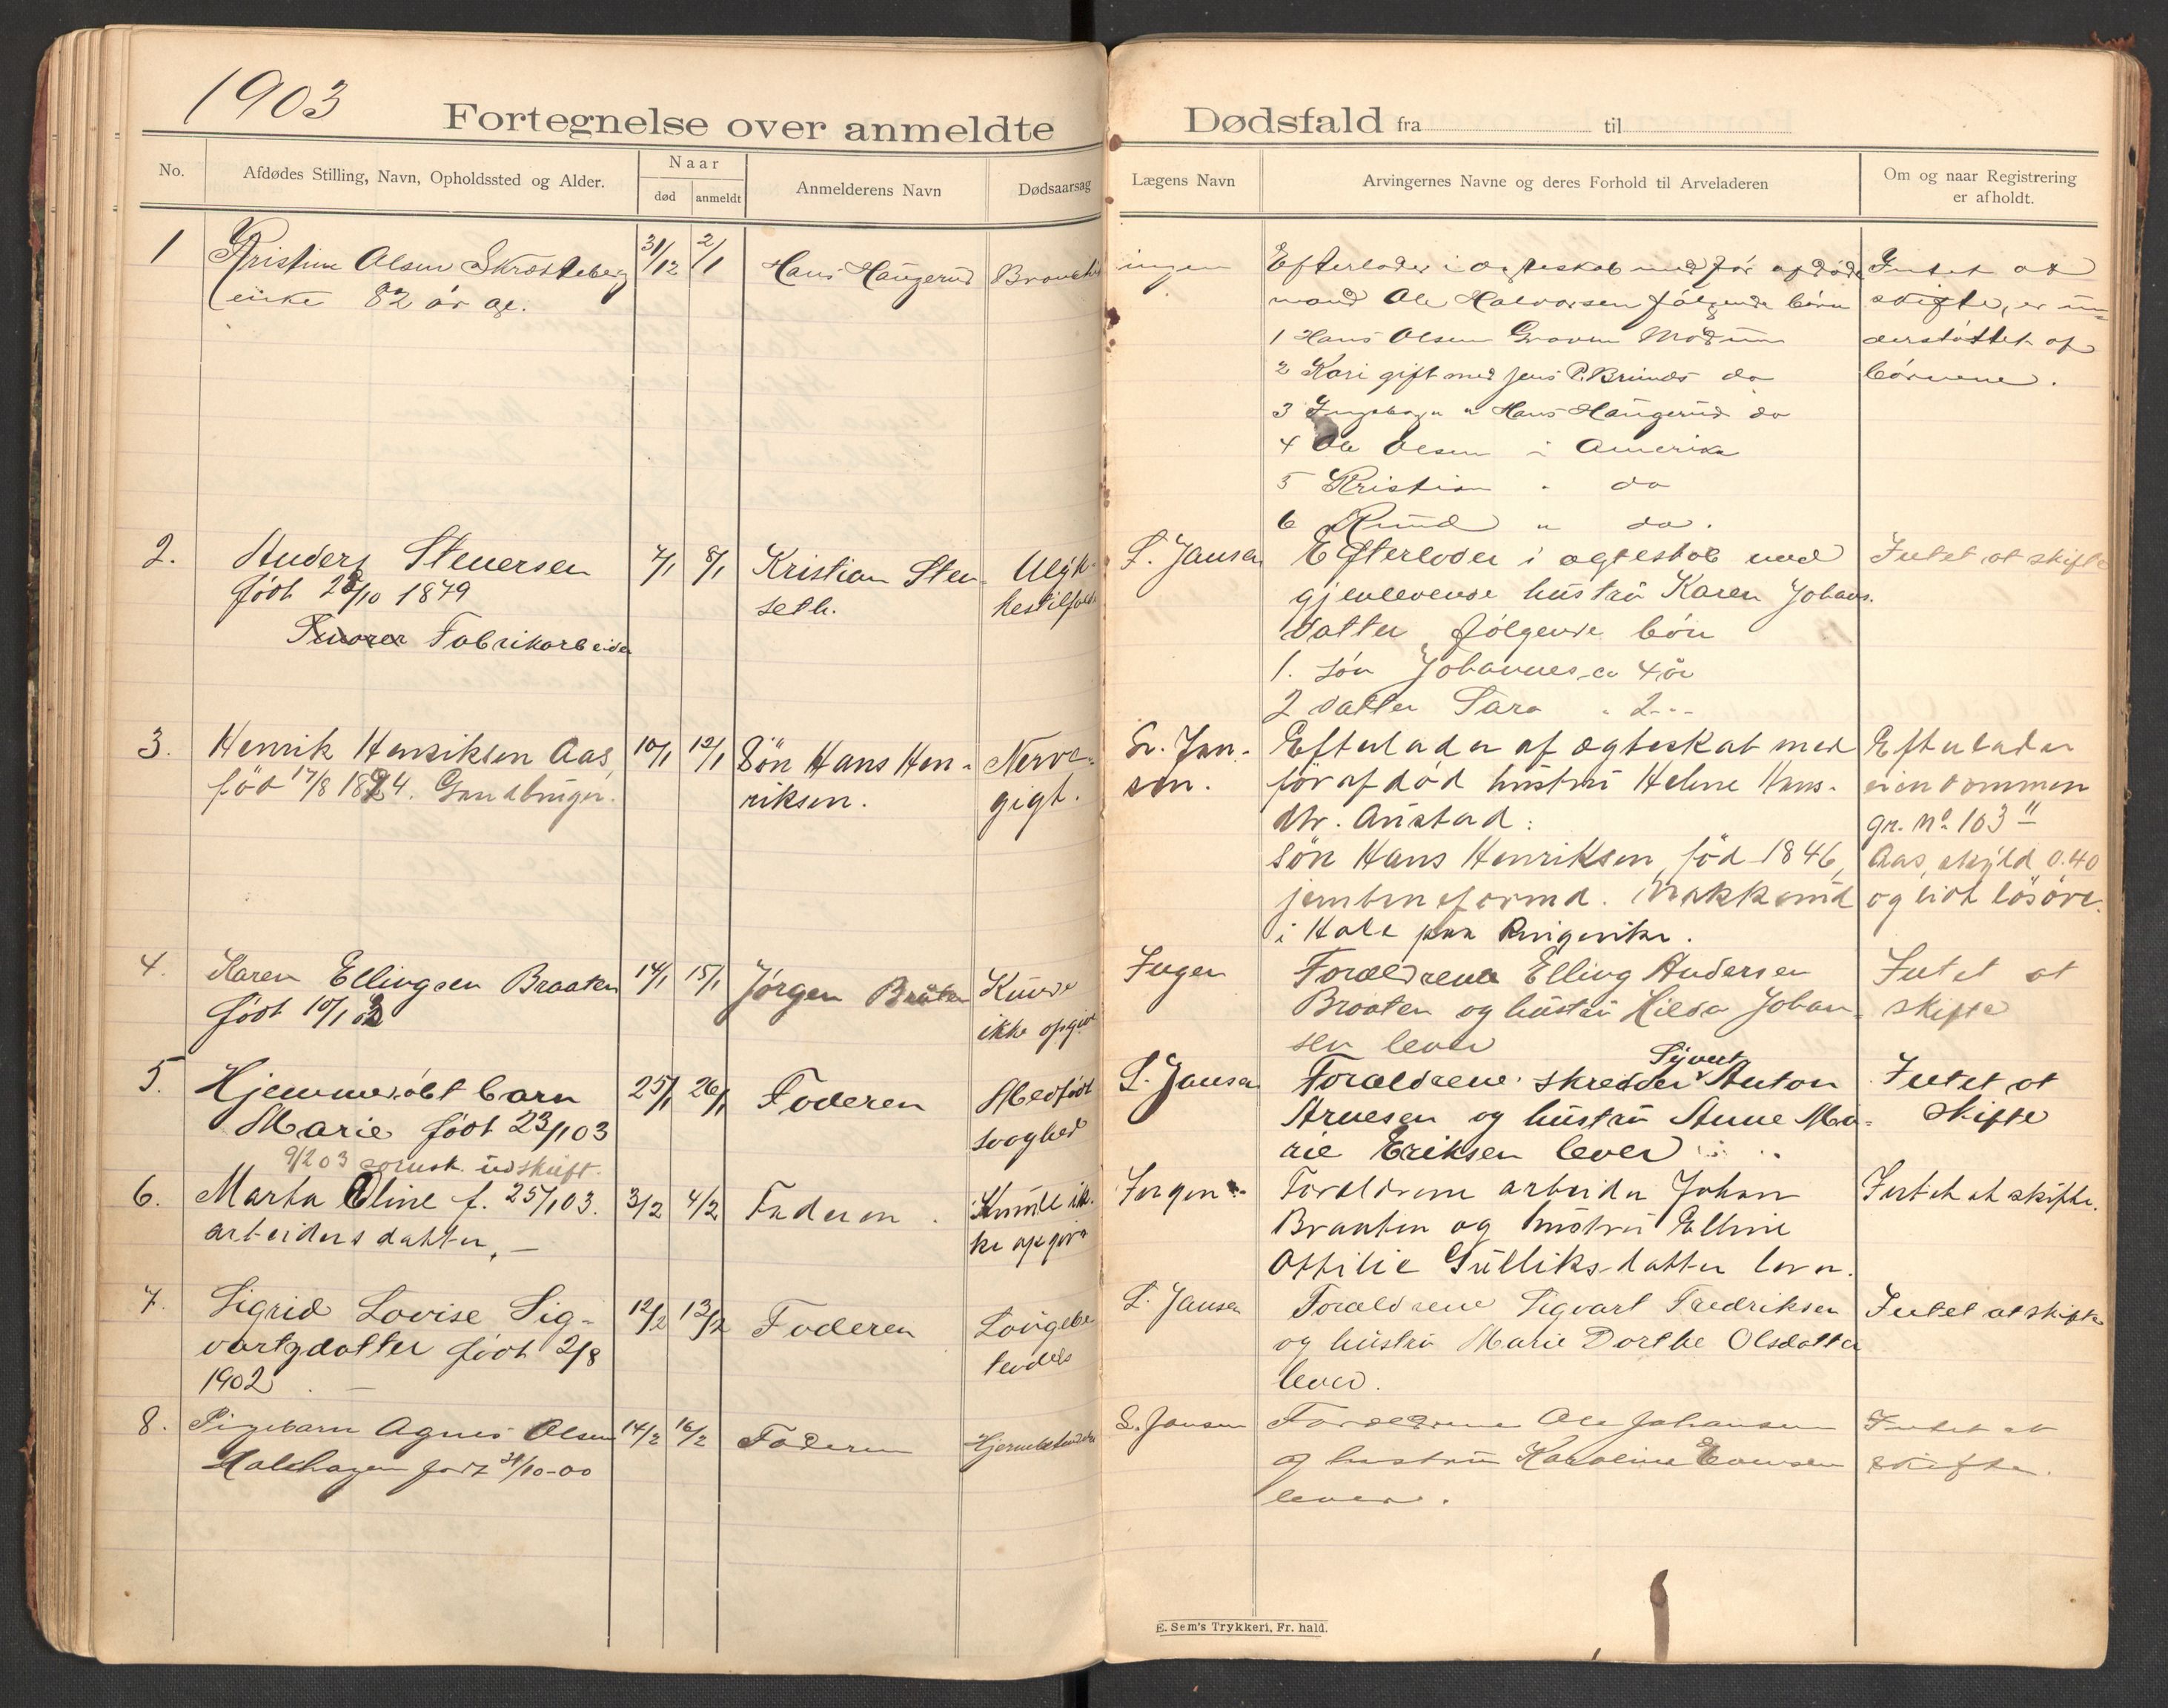 1903
Fortegnelse over anmeldte Dødsfald fra til
No.
Afdødes Stilling, Navn, Opholdssted og Alder.
Naar
død
anmeldt
Anmelderens Navn
Dødsaarsag
Lægens Navn
Arvingernes Navne og deres Forhold til Arveladeren
Om og naar Registrering
er afholdt.
1
Kristine Olsen Skræsteberg
enke 82 år gl.
31/12
2/1
Hans Haugerud
ingen
Efterlader i ægteskab med før afdøde
mand Ole Halvorsen følgende børn
1 Hans Olsen Graven Modum
2 Kari gift med Jens P. Brunds do
3 Ingeborg " Hans Haugerud do
4 Ole Olsen i Amerika
5 Kristian " do
6 Knud " do.
Intet at
skifte, er un-
derstøttet af
børnene.
2.
Anders Stenersen
født 25/10 1879
Fabrikarbeider
7/1
8/1
Kristian Sten-
seth.
Ulyk-
kestilfælde
L. Jansen
Efterlader i ægteskab med
gjenlevende hustru Karen Johans-
datter følgende børn
1. søn Johannes ca 4 år
2 datter Sara " 2 - -
Intet at skifte
3.
Henrik Henriksen Aas,
född 17/8 1824. Gaardbruger.
10/1
12/1
Sön Hans Hen-
riksen.
Nerve-
gigt.
Dr. Jan-
sen.
Efterlader af ægteskab med
før afdød hustru Helene Hans-
dtr. Austad:
søn Hans Henriksen, född 1846,
jernbaneformd. Nakkerud
i Hole paa Ringerike.
Efterlader
eiendommen
gr. No 103 "
Aas, skyld 0.40
og lidt løsøre.
4.
Karen Ellingsen Braaten
født 10/1 03
14/1
15/1
Jørgen Bråten
Kunde
ikke opgives
Ingen
Forældrene Elling Andersen
Braaten og hustru Hilda Johan-
sen lever
Intet at
skifte
5.
Hjemmedøbt barn
Marie født 23/1 03
9/2 03 udskrift.
25/1
26/1
Faderen
Medfødt
svaghed
L. Jansen
Forældrene skredder Syvert Anton
Arnesen og hustru Anne Ma-
rie Eriksen lever
Intet at
skifte
6.
Marta Eline f. 25/1 03.
arbeiders datter. —
3/2
4/2
Faderen.
Kunde ik-
ke opgives
Ingen
Forældrene arbeider Johan
Braaten og hustru Elline
Ottilie Gulliksdatter lever.
Intet at skifte.
7.
Sigrid Lovise Sig-
vartsdatter født 2/8
1902. —
12/2
13/2
Faderen
Lungebe-
tendels
L. Jansen
Forældrene Sigvart Fredriksen
og hustru Marie Dorthe Olsdatter
lever.
Intet at skifte
8.
Pigebarn Agnes Olsen
født 31/10-00
14/2
16/2
Faderen
Hjernebetendelse
L. Jansen
Forældrene Ole Johansen
og hustru Karoline Evensen
lever.
Intet at
skifte.
E. Sem's Trykkeri, Fr. hald.